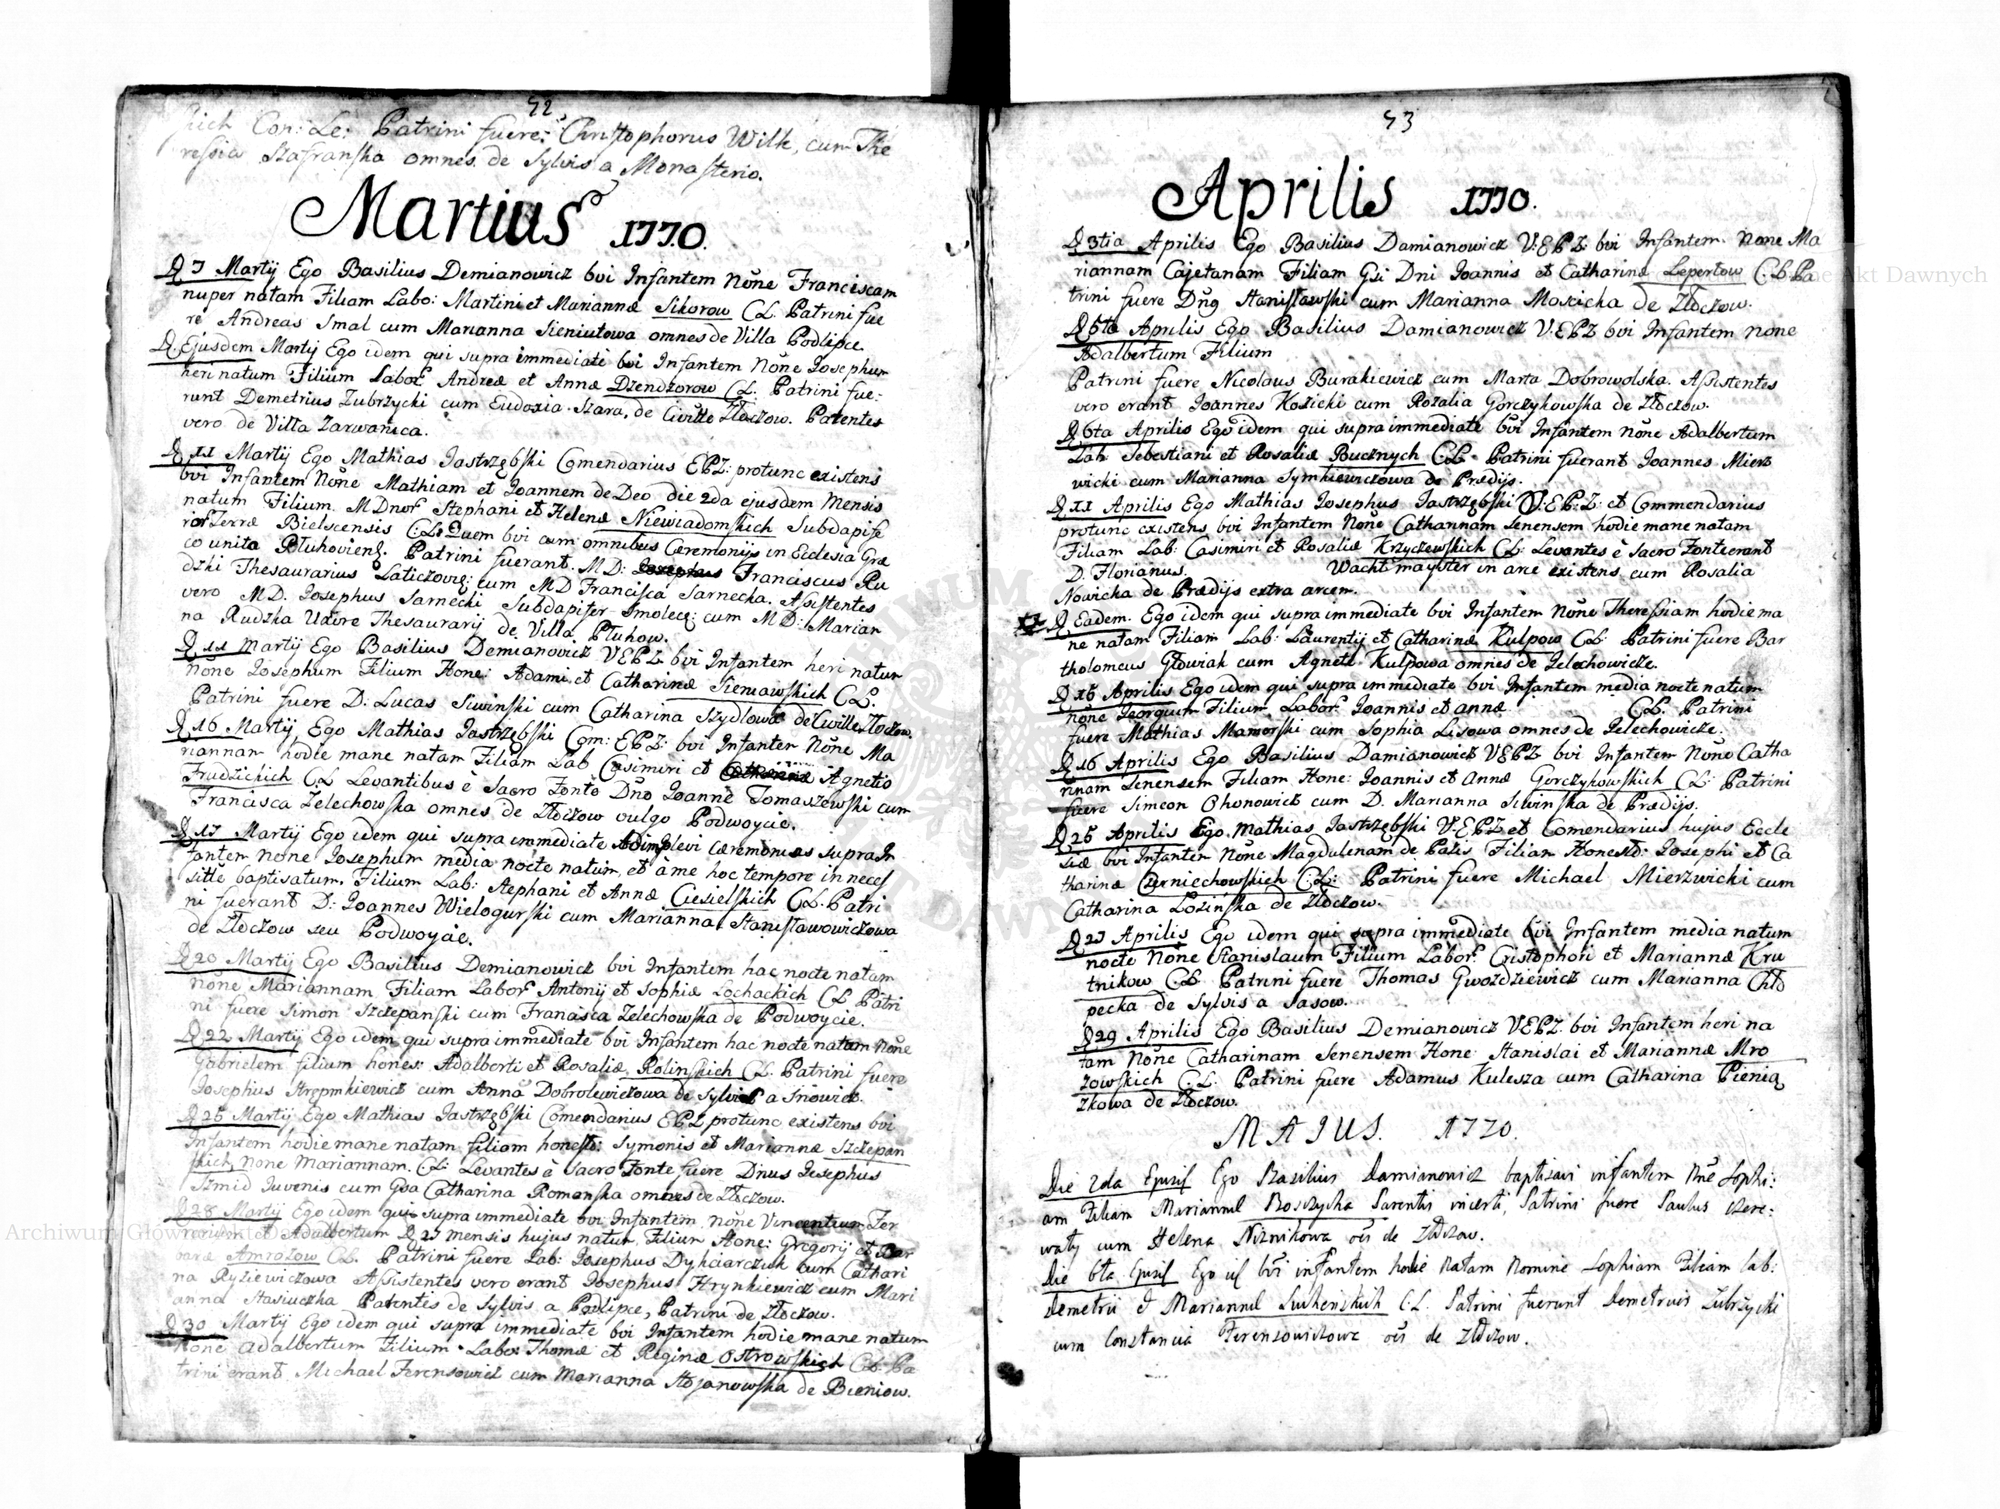 42
skich Con: Le: Patrini fuere: Christophorus Wilk, cum The
ressia Szafranska omnes de Sylvis a Monasterio.
Martius 1770.
D 3 Martij Ego Basilius Demianowicz bvi Infantem None Franciscam
nuper natam Filiam Labo: Martini et Mariannæ Sikorow CL. Patrini fue
re Andreas Smal cum Marianna Sieniutowa omnes de Villa Podlipce.
D. Ejusdem Martij Ego idem qui supra immediate bvi Infantem None Josephum
heri natum Filium Labor Andreæ et Annæ Dzendzorow CL. Patrini fue:
runt Demetrius Zubrzycki cum Eudoxia Szara, de Civitte Złoczow. Parentes
vero de Villa Zarwanica.
D 11 Martij Ego Mathias Jastrzębski Comendarius EPZ: protunc existens
bvi Infantem None Mathiam et Joannem de Deo die 2da ejusdem Mensis
natum Filium MDnor Stephani et Helenæ Niewiadomskich Subdapife
ror Terræ Bielscensis C:L: Quem bvi cum omnibus Cæremonijs in Ecclesia Græ
co unita Płuhoviens. Patrini fuerant. MD: Josephus Franciscus Ru
dzki Thesaurarius Laticzovie: cum MD Francisca Sarnecka. Assistentes
vero MD. Josephus Sarnecki Subdapifer Smolec: cum MD: Marian
na Rudzka Uxore Thesaurarij de Villa Płuhow.
D 11 Martij Ego Basilius Demianovicz VEPZ bvi Infantem heri natum
None Josephum Filium Hone: Adami et Catharinæ Sieniawskich CL.
Patrini fuere D: Lucas Siwinski cum Catharina Szydlowa de Civitte Złoczow.
D 16 Martij, Ego Mathias Jastrzębski Com: EPZ: bvi Infantem None Ma
riannam hodie mane natam Filiam Lab Casimiri et Catharinæ Agnetis
Frudzickich CL Levantibus è Sacro Fonte Dno Joanne Tomaszewski cum
Francisca Zelechowska omnes de Złoczow vulgo Podwoycie.
D 17 Martij Ego idem qui supra immediate Adimplevi cæremonias supra In
fantem None Josephum media nocte natum, et à me hoc tempore in neces
sitte baptisatum. Filium Lab: Stephani et Annæ Ciesielskich CL. Patri
ni fuerant D: Joannes Wielogurski cum Marianna Stanisławowiczowa
de Złoczow seu Podwoycie.
D 20 Martij Ego Basilius Demianowicz bvi Infantem hac nocte natam
None Mariannam Filiam Labor Antonij et Sophiæ Lochackich CL Patri
ni fuere Simon Szczepanski cum Francisca Zelechowska de Podwoycie.
D 22 Martij Ego idem qui supra immediate bvi Infantem hac nocte natum None
Gabrielem filium hones: Adalberti et Rosaliæ Rolinskich CL. Patrini fuere
Josephus Strepmkiewicz cum Anna Dobrolewiczowa de Sylvis a Snowicz.
D 25 Martij Ego Mathias Jastrzębski Comendarius EPZ protunc existens bvi
Infantem hodie mane natam filiam honest: Symonis et Mariannæ Szczepan
skich None Mariannam. CL: Levantes è Sacro Fonte fuere Dnus Josephus
Szmid Juvenis cum Gsa Catharina Romanska omnes de Złoczow.
D 28 Martij Ego idem qui supra immediate bvi Infantem None Vincentium Fer
rerium et Adalbertum D 27 mensis hujus natum Filium Hone: Gregorij et Bar
baræ Amrozow CL. Patrini fuere Lab: Josephus Dykciarczuk cum Cathari
na Ryziewiczowa Assistentes vero erant Josephus Hrynkiewicz cum Mari
anna Stasiuczka Parentes de Sylvis a Podlipce, Patrini de Złoczow.
D 30 Martij Ego idem qui supra immediate bvi Infantem hodie mane natum
None Adalbertum Filium Labor Thomæ et Reginæ Ostrowskich CL. Pa
trini erant Michael Ferensowicz cum Marianna Stojanowska de Bieniow.
43
Aprilis 1770.
D 3tia Aprilis Ego Basilius Damianowicz V.EPZ. bvi Infantem. None Ma
riannam Cajetanam Filiam Gsi Dni Joannis et Catharinæ Lepertow C:L: Pa
trini fuere Dng Stanisławski cum Marianna Mozicka de Złoczow.
D 5ta Aprilis Ego Basilius Damianowicz V:EPZ bvi Infantem None
Adalbertum Filium
Patrini fuere Nicolaus Burakiewicz cum Marta Dobrowolska. Assistentes
vero erant Joannes Kozicki cum Rozalia Gorczykowska de Złoczow.
D 6ta Aprilis Ego idem qui supra immediate bvi Infantem None Adalbertum
Lab Sebestiani et Rosaliæ Bucznych CL. Patrini fuerant Joannes Mierz
wicki cum Marianna Symkiewiczowa de Prædijs.
D 11 Aprilis Ego Mathias Josephus Jastrzębski V:EP:Z: et Commendarius
protunc existens bvi Infantem None Catharinam Senensem hodie mane natam
Filiam Lab: Casimiri et Rosaliæ Krzyczewskich CL: Levantes è Sacro Fonte erant
D. Florianus. Wachtmayster in arce existens cum Rosalia
Nowicka de Prædijs extra arcem.
D Eadem. Ego idem qui supra immediate bvi Infantem None Theressiam hodie ma
ne natam Filiam Lab: Laurentij et Catharinæ Kulpow CL: Patrini fuere Bar
tholomeus Głowiak cum Agnete Kulpowa omnes de Zelechowicze.
D 15 Aprilis Ego idem qui supra immediate bvi Infantem media nocte natum
None Georgium Filium Labor Joannis et Annæ CL. Patrini
fuere Mathias Mamorski cum Sophia Lisowa omnes de Zelechowicze.
D 16 Aprilis Ego Basilius Damianowicz VEPZ bvi Infantem None Catha
rinam Senensem Filiam Hone: Joannis et Annæ Gorczykowskich CL: Patrini
fuere Simeon Ohonowicz cum D. Marianna Siwinska de Prædijs.
D 25 Aprilis Ego Mathias Jastrzębski V:EPZ et Comendarius hujus Eccle
siæ bvi Infantem None Magdalenam de Patis Filiam Honestd: Josephi et Ca
tharinæ Czerniechowskich C:L: Patrini fuere Michael Mierzwicki cum
Catharina Lozinska de Złoczow.
D 27 Aprilis Ego idem qui supra immediate bvi Infantem media natum
nocte None Stanislaum Filium Labor: Cristophori et Mariannæ Kru
tnikow CL Patrini fuere Thomas Gwozdziewicz cum Marianna Chło
pecka de Sylvis a Sasow.
D 29 Aprilis Ego Basilius Demianowicz VEPZ. bvi Infantem heri na
tam None Catharinam Senensem Hone: Stanislai et Mariannæ Mro
zowskich C.L. Patrini fuere Adamus Kulesza cum Catharina Pienią
zkowa de Złoczow.
MAIUS. 1770.
Die 2da Ejusd Ego Bazilius Damianowicz baptisavi infantem Nne Sophi:
am Filiam Mariannæ Roszycka Parentis incerti, Patrini fuere Paulus Czere:
waty cum Helena Niznikowa oes de Złoczow.
Die 6ta Ejusd Ego ut bvi infantem hodie natam Nomine Sophiam Filiam lab:
Demetrii et Mariannæ Suchenskich C.L. Patrini fuerunt Demetrius Zubrzycki
cum Constancia Ferensowiczowa oes de Złoczow.